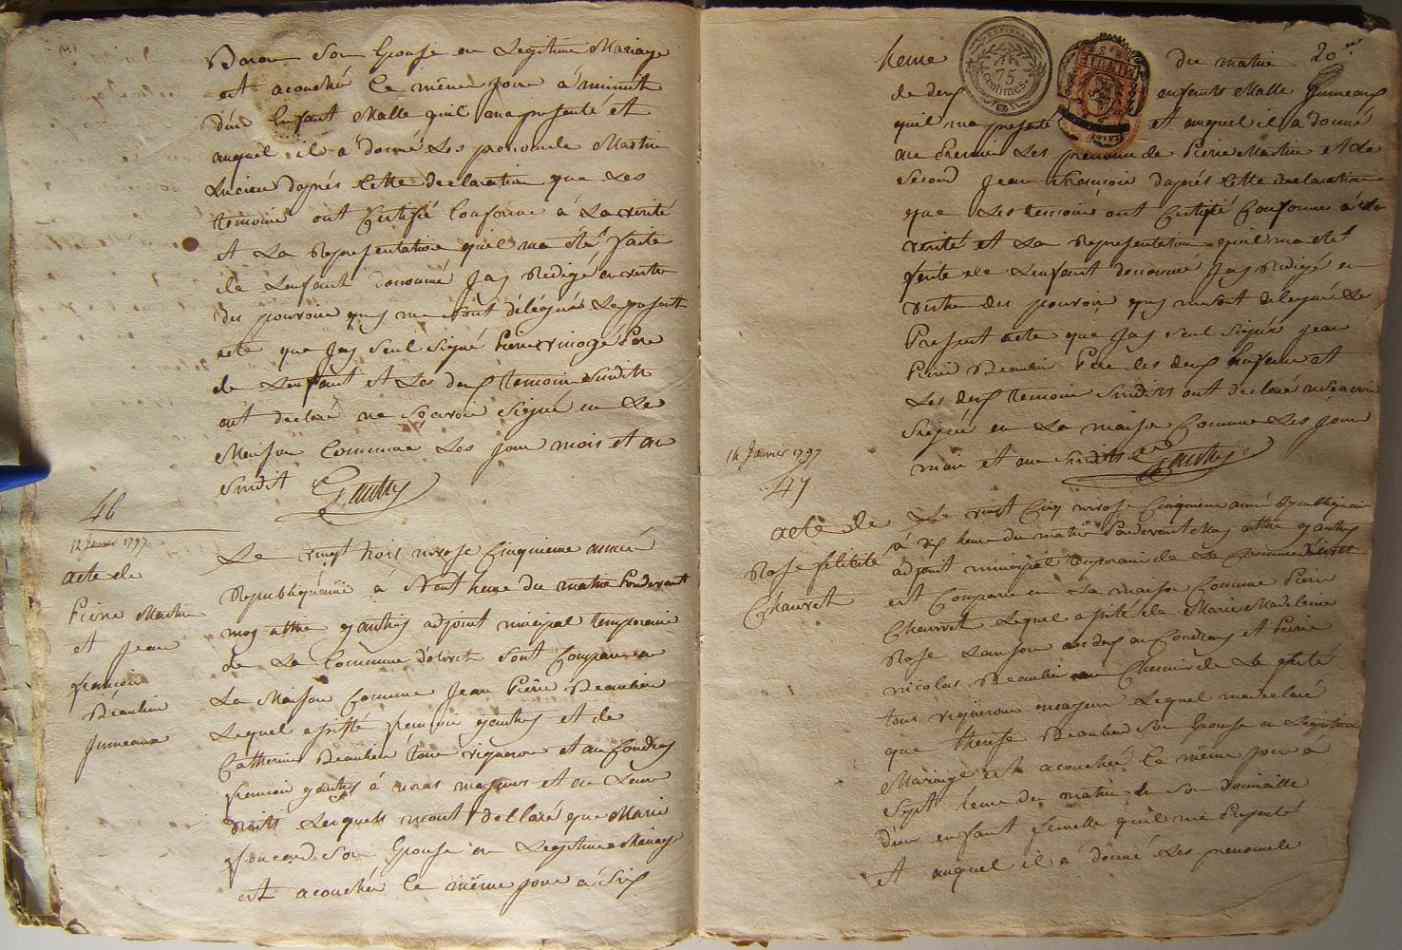 Son Epouse en Legitime Mariage
est acouchée le même jour à minuit
d'un Enfant Malle quil ma presenté et
auquel il à donné Les prenoms de Martin
Lucien d'aprés cette declaration que Les
temoins ont Certifié Conforme à La verité
et La Representation quil ma été faite
de L'enfant denommé Jay Redigé en vertu
des pouvoirs quy me sont délégués Le present
acte que Jay Seul Signé Pierre Père
de L'enfant et Les deux temoins Susdits
ont declaré ne Sçavoir Signé en La
Maison Commune Les jour mois et an
Susdit Gauthey
46
12 Janvier 1797
acte de
Pierre Martin
et Jean
François
Beaubin
Jumeaux
Le vingt trois nivose Cinquieme année
Republiquaine à neuf heure du matin Pardevant
moy gauthey adjoint municipal temporaire
de La Commune Sont Comparu en
La Maison Commune Jean Pierre Beaubin
Lequel assisté François gauthey et de
Catherine Beaubin tous vigneron et au Coudray
François gauthey à majeurs et de Leurs
droits Lesquels mont déclaré que Marie
Son Epouse en Legitime Mariage
est acouchée le même jour à Six
heure du matin 20
75
centimes
de deux enfants Malle Jumeaux
quil ma presenté et auquel il à donné
au Premier Les prenoms de Pierre Martin et Le
Second Jean François d'aprés cette declaration
que Les temoins ont Certifié Conforme à La
verité et La Representation quil ma été
faite de L'enfant denommé Jay Redigé en
vertu des pouvoirs quy me sont delegués Le
Present acte que Jay Seul Signé Jean
Pierre Beaubin Père des deux Enfants et
Les deux temoins Susdits ont declaré ne Sçavoir
Signé en La maison Commune Les jour
mois et an Susdits Gauthey
14 Janvier 1797
47
acte de
Rose felicité
Chauvet
Le vingt Cinq nivose Cinquieme année Republiquaine
à dix heure du matin Pardevant Moy gauthey
adjoint municipal temporaire de La Commune
est Comparu en La maison Commune Pierre
Chauvet Lequel assisté de Marie Madeleine
Rose au Coudray et Pierre
nicolas Beaubin Chemin de La
tous vigneron majeurs Lequel ma declaré
que therese Beaubin Son Epouse en Legitime
Mariage est acouchée le même jour à
Sept heure du matin
d'un enfant femelle quil ma Presenté
et auquel il à donné Les prenoms de